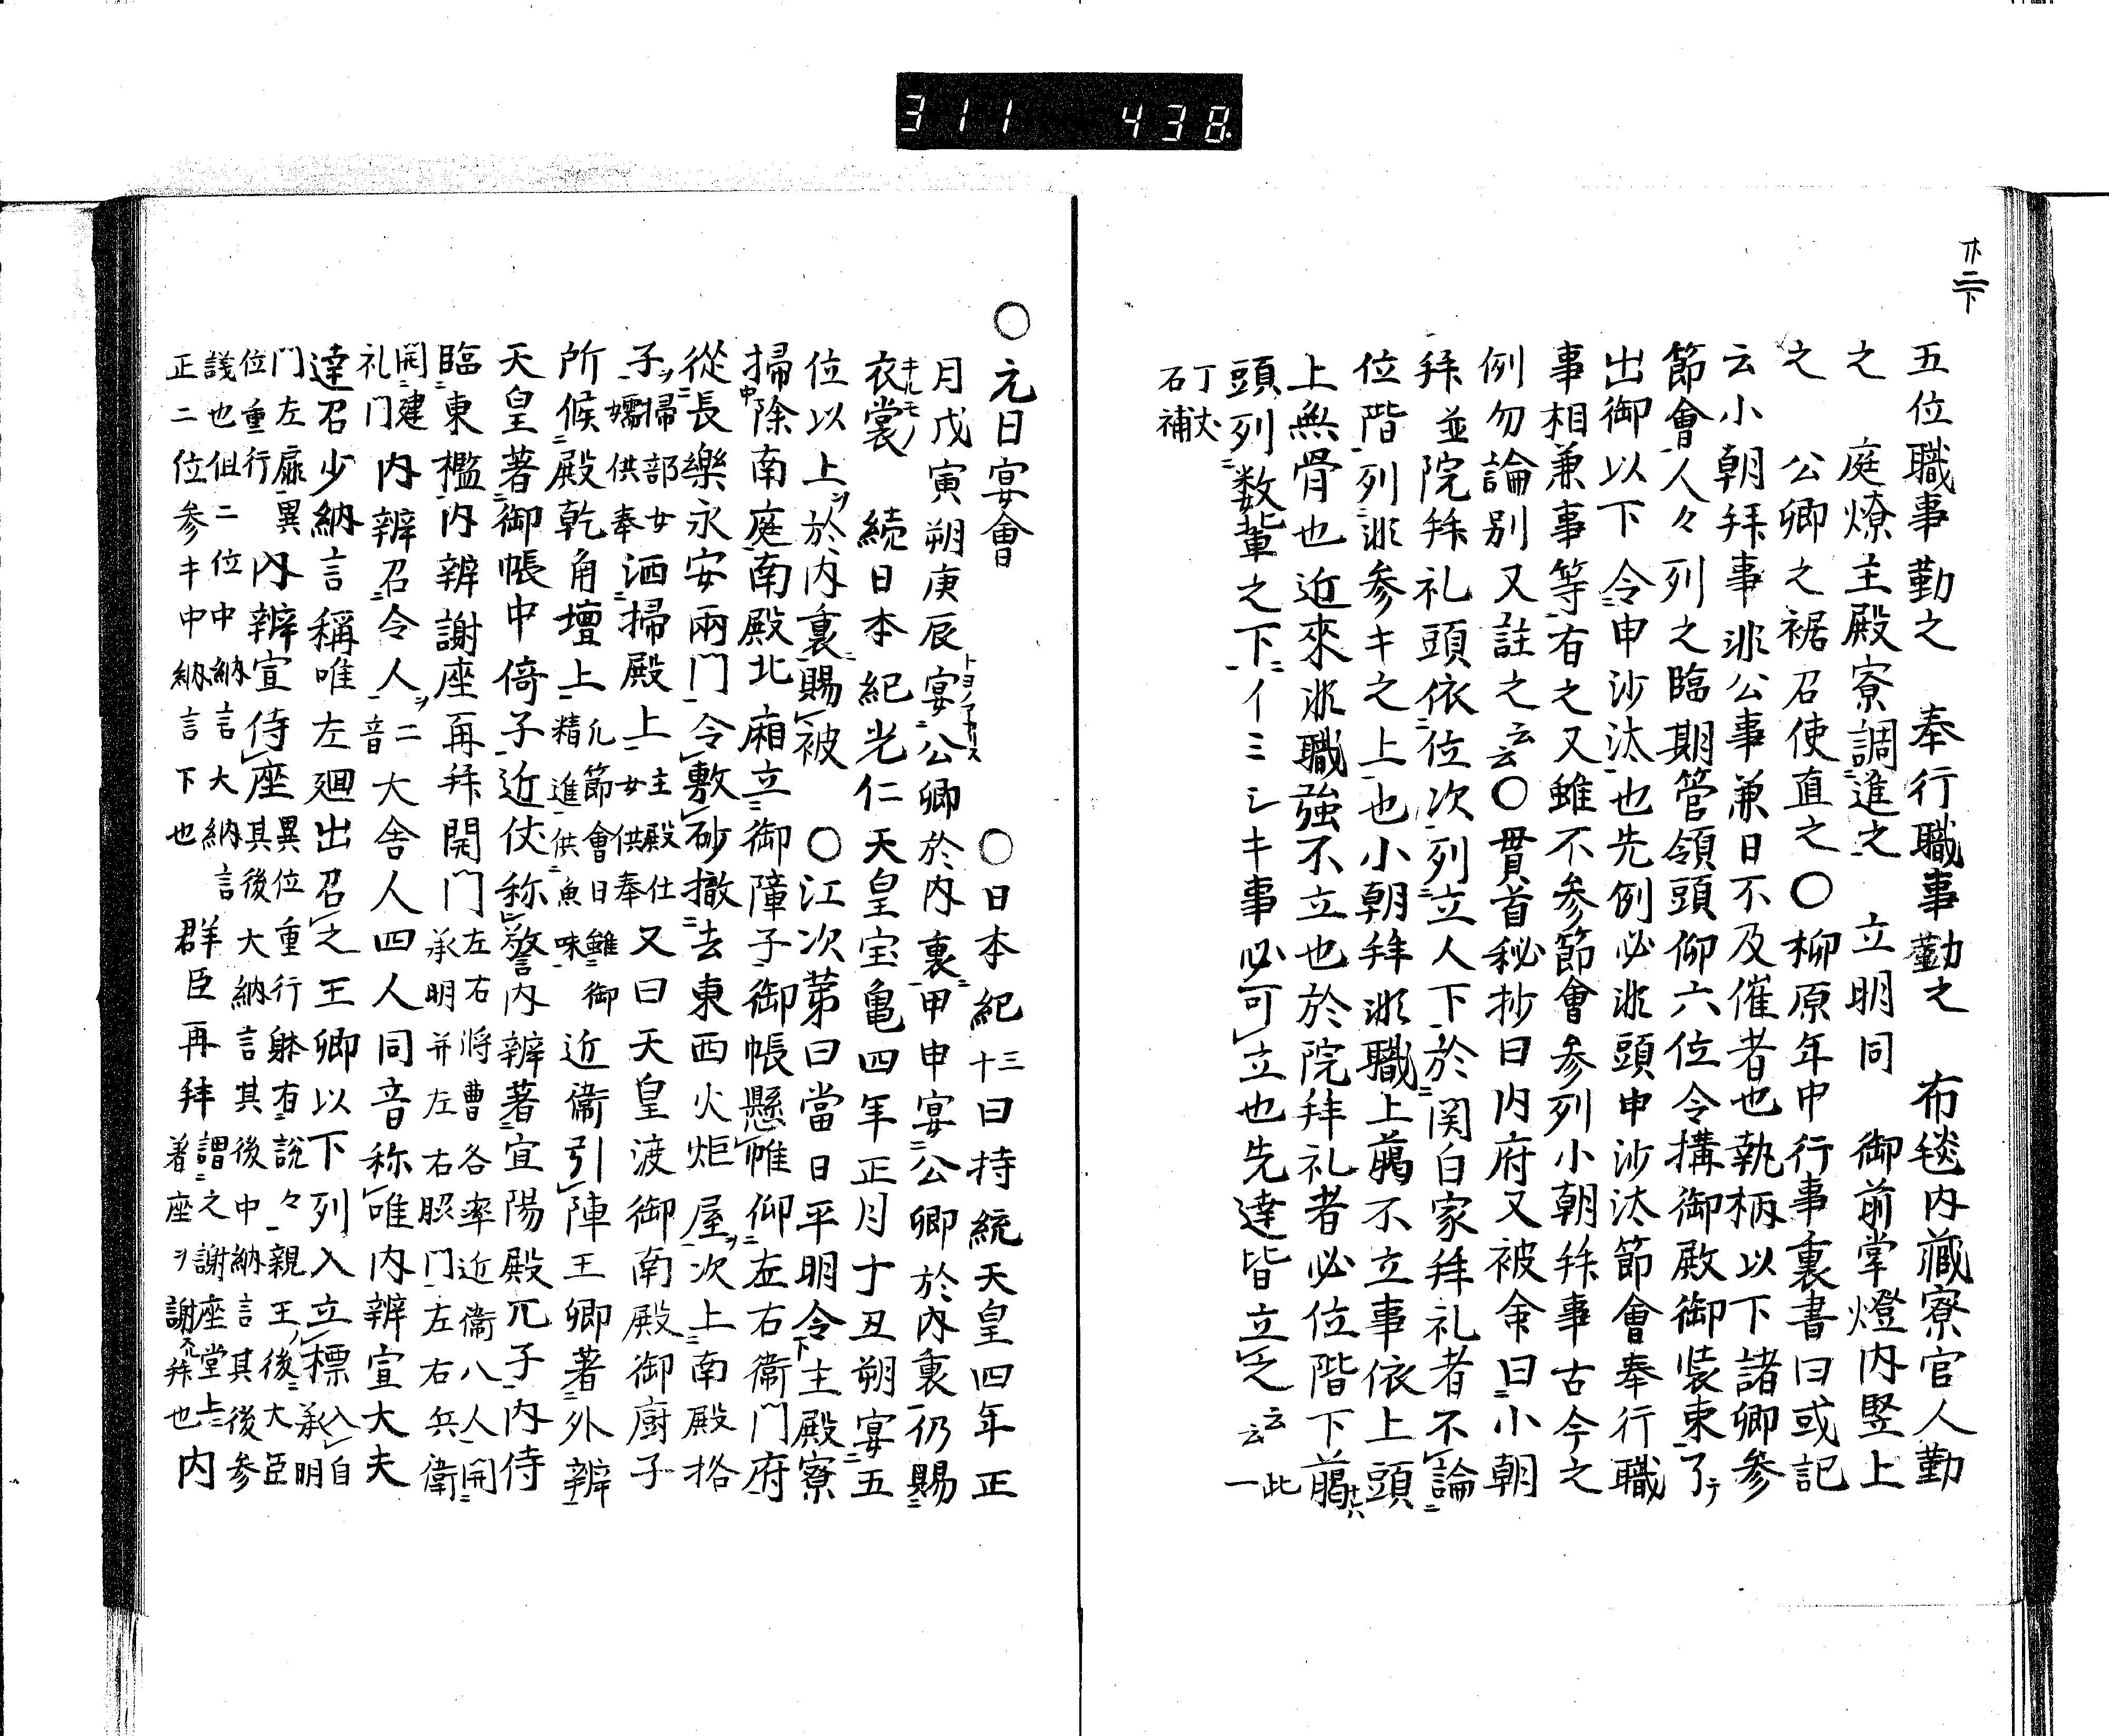 311 438
廾二下
五位職事勤之 奉行職事勤之 布毯内蔵寮官人勤
之 庭燎主殿寮調進之 立明同 御前掌燈内竪上
之 公卿之裾召使直之〇柳原年中行事裏書曰或記
云小朝拜事非公事兼日不及催者也執柄以下諸卿参
節會人々列之臨期管領頭仰六位令搆御殿御装束了テ
出御以下令申沙汰也先例必非頭申沙汰節會奉行職
事相兼事等有之又雖不参節會参列小朝拜事古今之
例勿論別又註之云云〇貫首秘抄曰内府又被命曰小朝
拜並院拜礼頭依位次列立人下於関白家拜礼者不論
位階列非参キ之上也小朝拜非職上萬不立事依上頭
上無骨也近來非職強不立也於院拜礼者必位階下﨟
頭列数輩之下イミシキ事必可立也先達皆立之云云 此一
丁丈石補
〇元日宴會 〇日本紀三十曰持統天皇四年正
月戊寅朔庚辰宴公卿於内裏甲申宴公卿於内裏仍賜
衣裳 続日本紀光仁天皇宝亀四年正月丁丑朔宴五
位以上ヲ於内裏賜被 〇江次第曰當日平明令主殿寮
掃除南庭南殿北廂立御障子御帳懸帷仰左右衛門府
從長樂永安兩門令敷砂撤去東西火炬屋ヲ次上南殿格
子ヲ掃部女嬬供奉洒掃殿上主殿仕女供奉又曰天皇渡御南殿御厨子
所候殿乾角壇上凡節會日雖御精進供魚味近衛引陣王卿著外辨
天皇著御帳中倚子近仗称警内辨著宜陽殿兀子内侍
臨東檻内辨謝座再拜開門左右将曹各率近衛八人開承明并左右腋門左右兵衛
開建礼门内辨召令人ヲ二音大舎人四人同音称唯内辨宣大夫
達召少納言稱唯左廻出召之王卿以下列入立標入自承明
門左扉異位重行内辨宣侍座異位重行躰有説々親王ノ後大臣其後大納言其後中納言其後参
議也但二位中納言大納言正二位参キ中納言下也群臣再拜謂之謝座堂上著座ヲ謝不拜也内